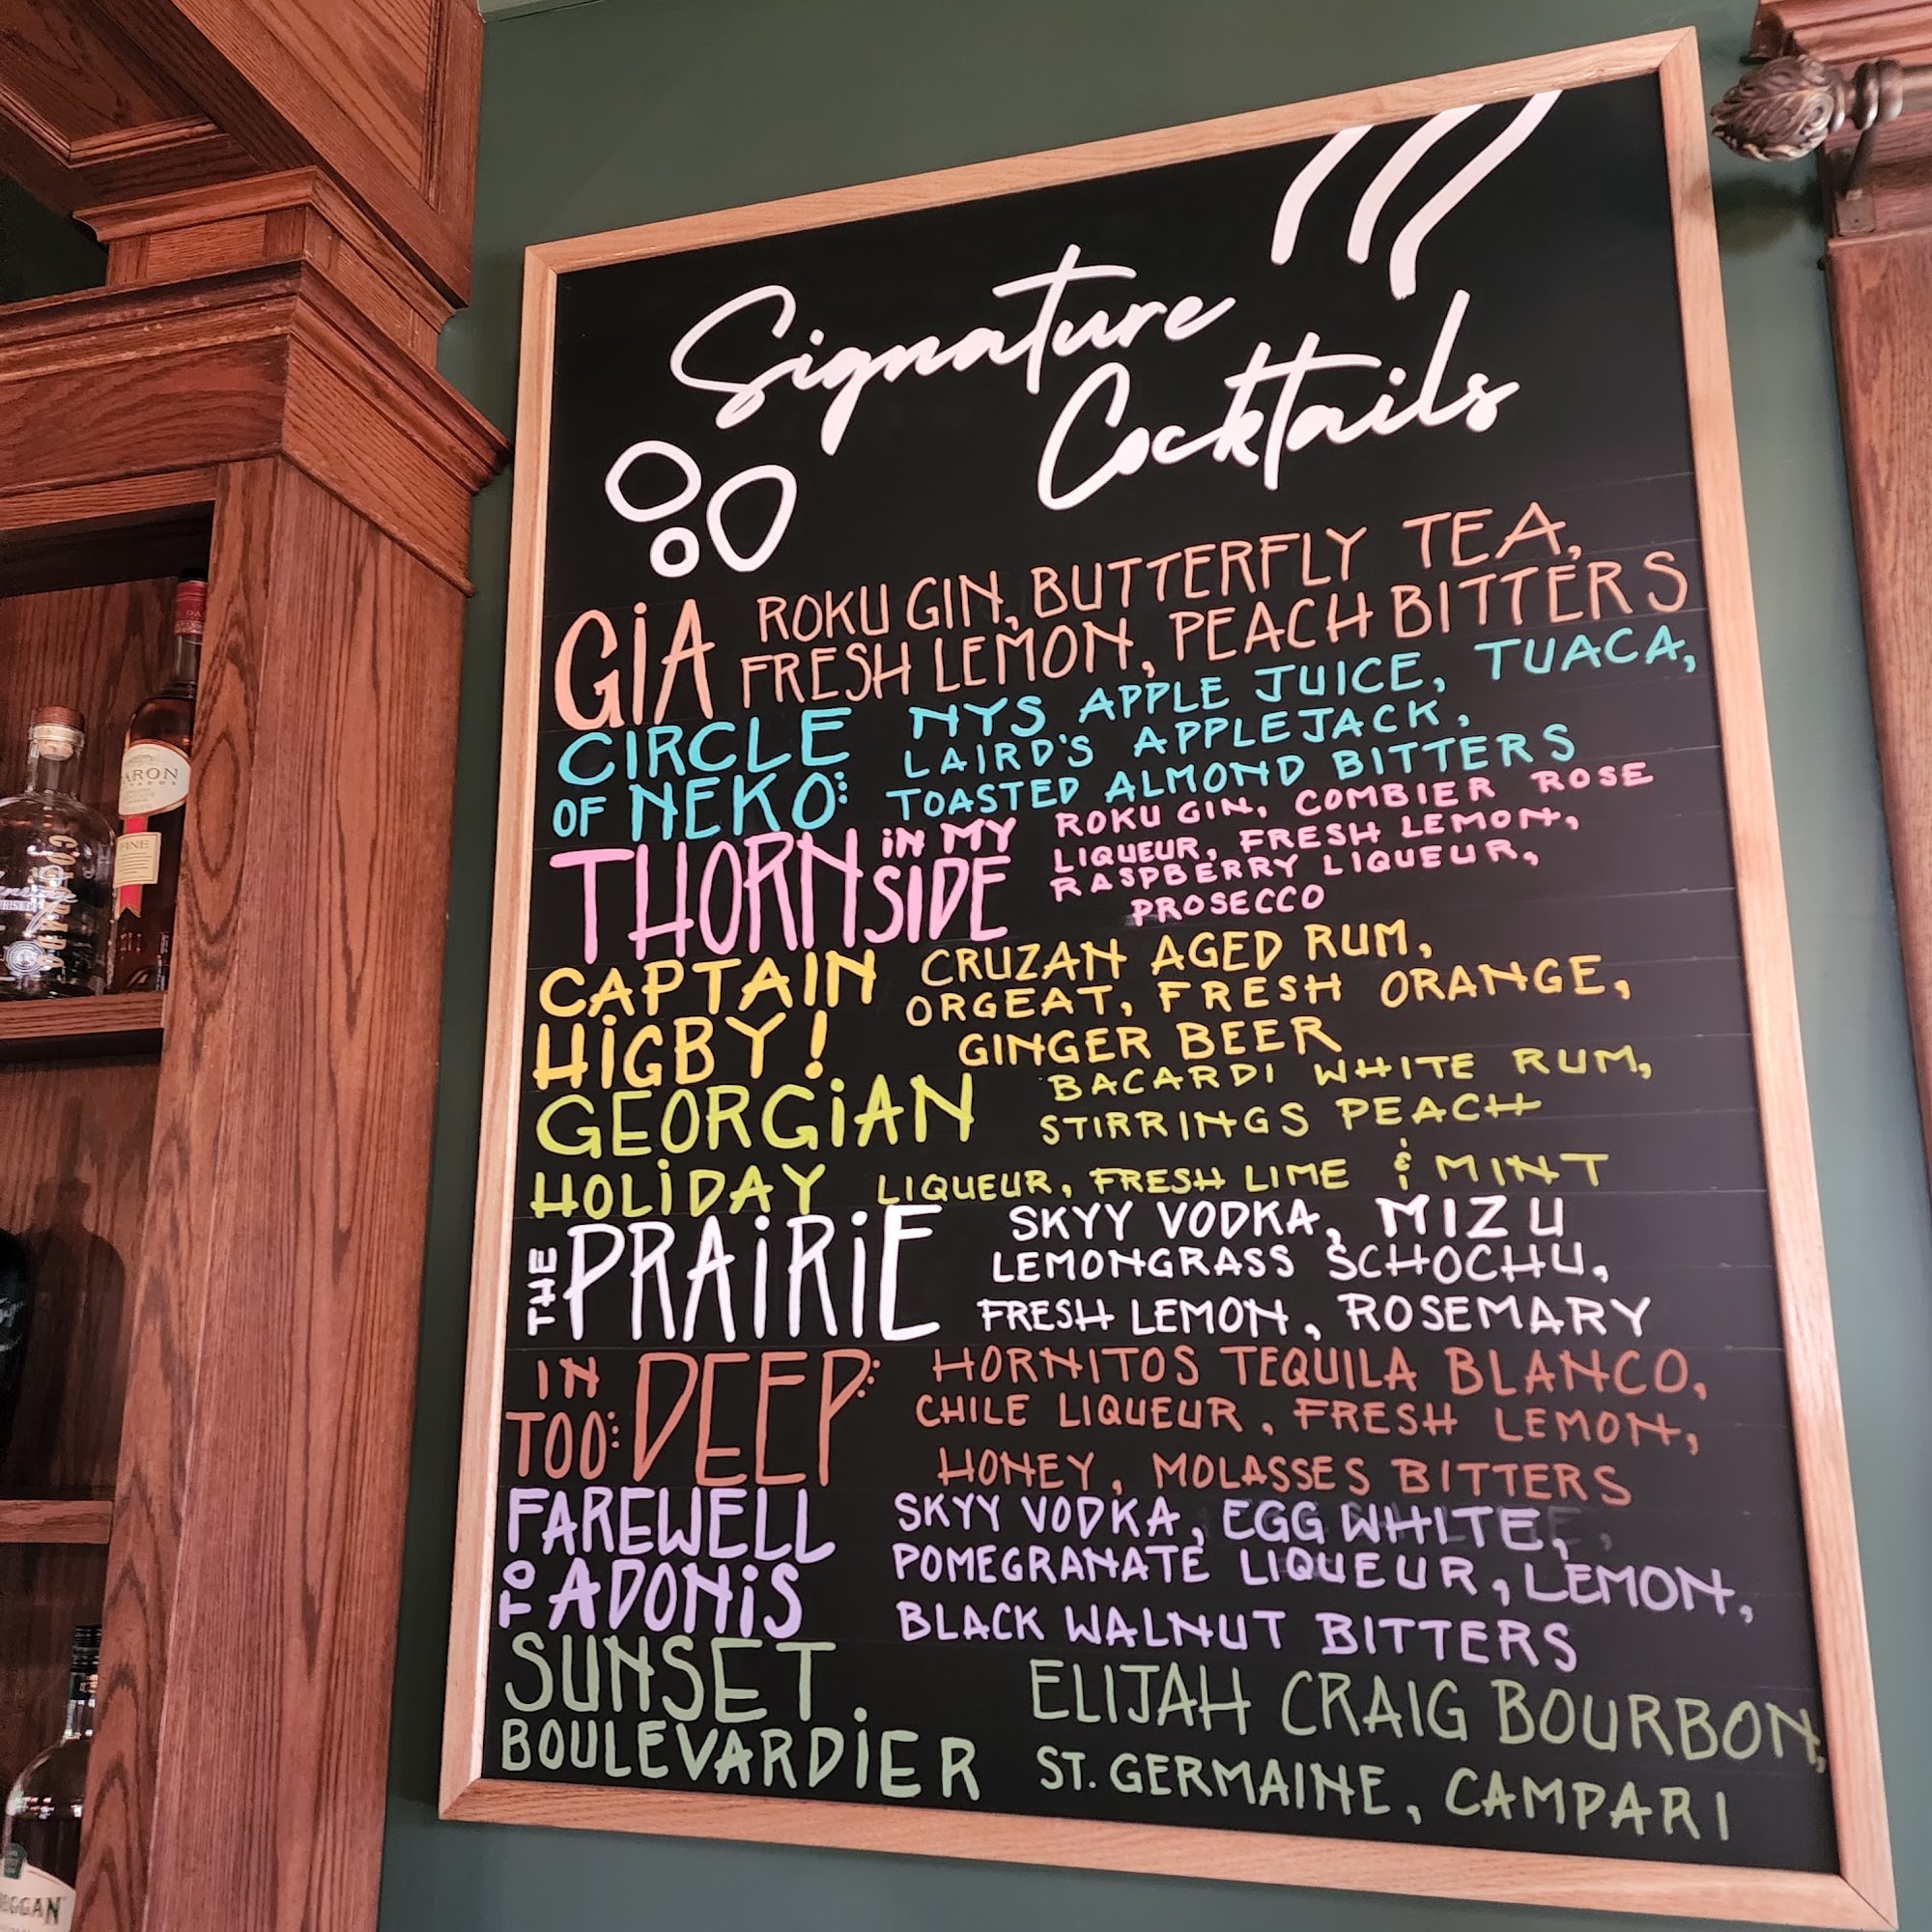 Signature
Cocktails
GIA ROKU GIN, BUTTERFLY TEA,
FRESH LEMON, PEACH BITTERS
CIRCLE NYS APPLE JUICE, TUACA,
LAIRD'S APPLEJACK,
OF NEKO: TOASTED ALMOND BITTERS
THORN IN MY SIDE ROKU GIN, COMBIER ROSE
LIQUEUR, FRESH LEMON,
RASPBERRY LIQUEUR,
PROSECCO
CAPTAIN CRUZAN AGED RUM,
ORGEAT, FRESH ORANGE,
HIGBY! GINGER BEER
GEORGIAN BACARDI WHITE RUM,
STIRRINGS PEACH
HOLIDAY LIQUEUR, FRESH LIME & MINT
THE PRAIRIE SKYY VODKA, MIZU
LEMONGRASS SCHOCHU,
FRESH LEMON, ROSEMARY
IN TOO DEEP HORNITOS TEQUILA BLANCO,
CHILE LIQUEUR, FRESH LEMON,
HONEY, MOLASSES BITTERS
FAREWELL SKYY VODKA, EGG WHITE,
TO ADONIS POMEGRANATE LIQUEUR, LEMON,
BLACK WALNUT BITTERS
SUNSET ELIJAH CRAIG BOURBON,
BOULEVARDIER ST. GERMAINE, CAMPARI
ARON
FINE
COLORADO
EGGAN